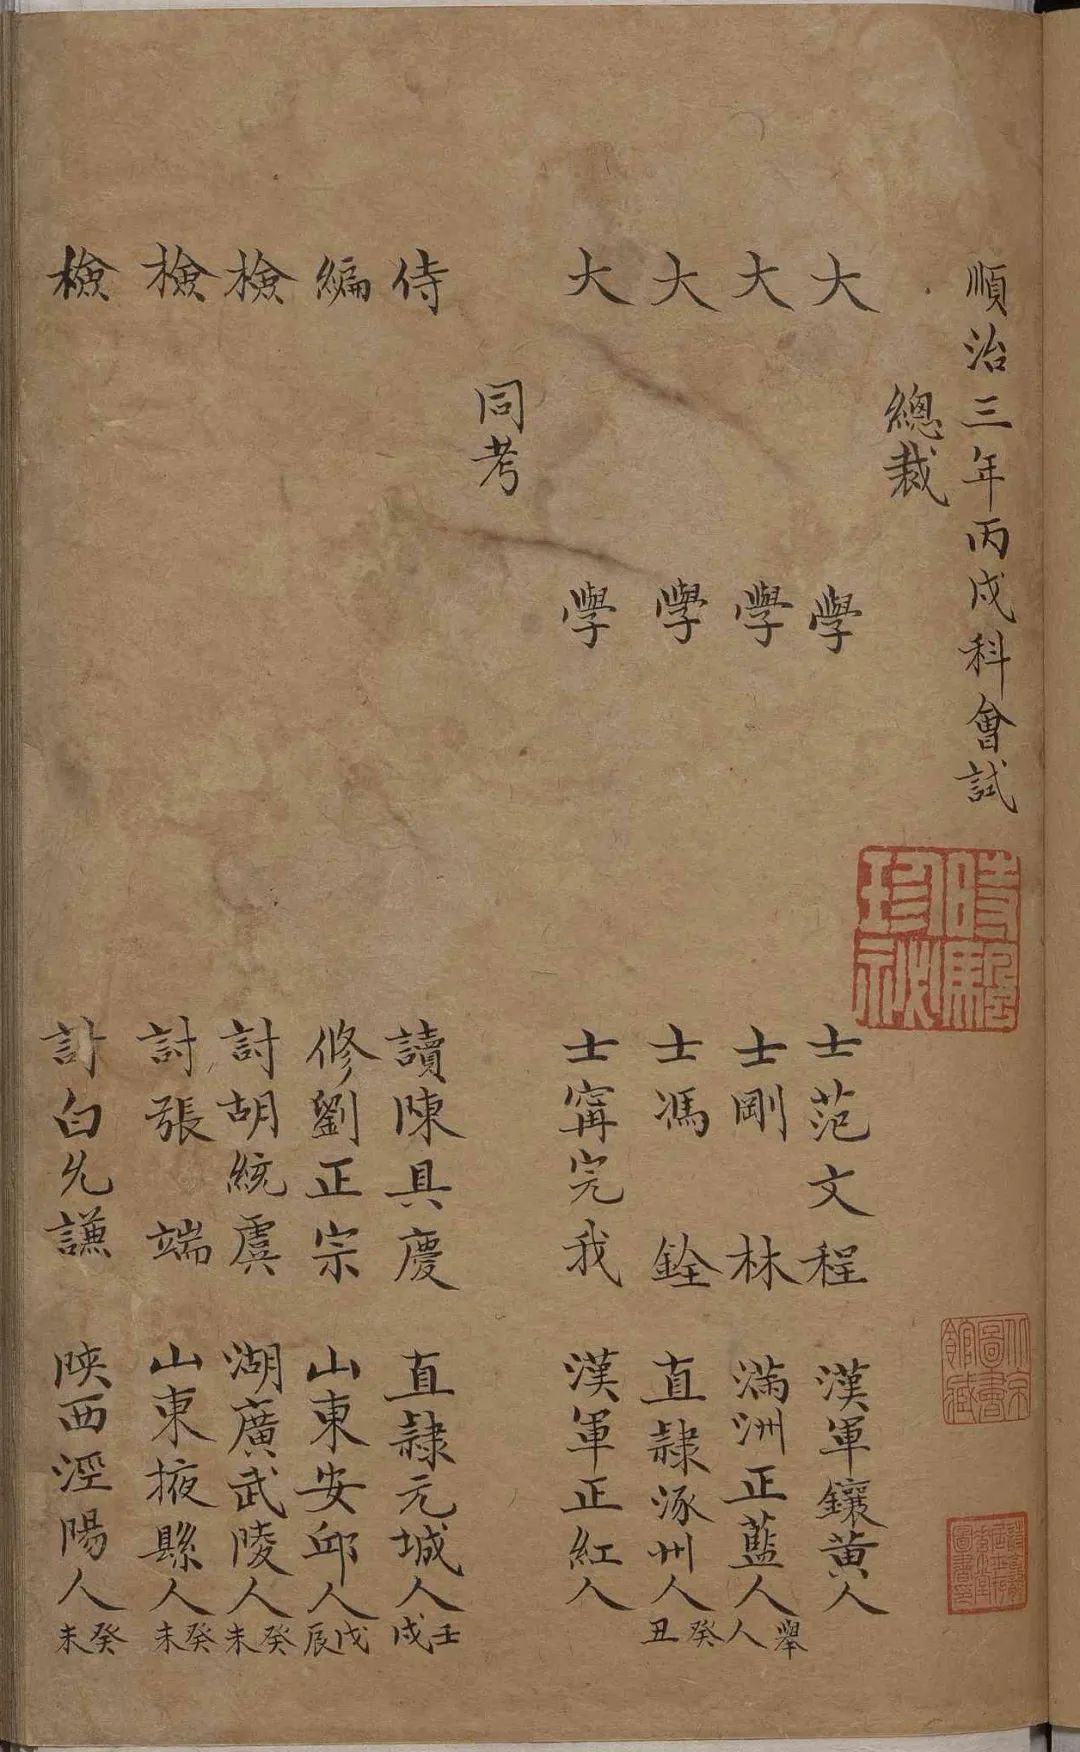 順治三年丙戌科會試
總裁
大學士范文程 漢軍鑲黃人
大學士剛林 滿洲正藍人 舉人
大學士馮銓 直隸涿州人 癸丑
大學士甯完我 漢軍正紅人
同考
侍讀陳具慶 直隸元城人 壬戌
編修劉正宗 山東安邱人 戊辰
檢討胡統虞 湖廣武陵人 癸未
檢討張端 山東掖縣人 癸未
檢討白允謙 陝西涇陽人 癸未
北京圖書館藏